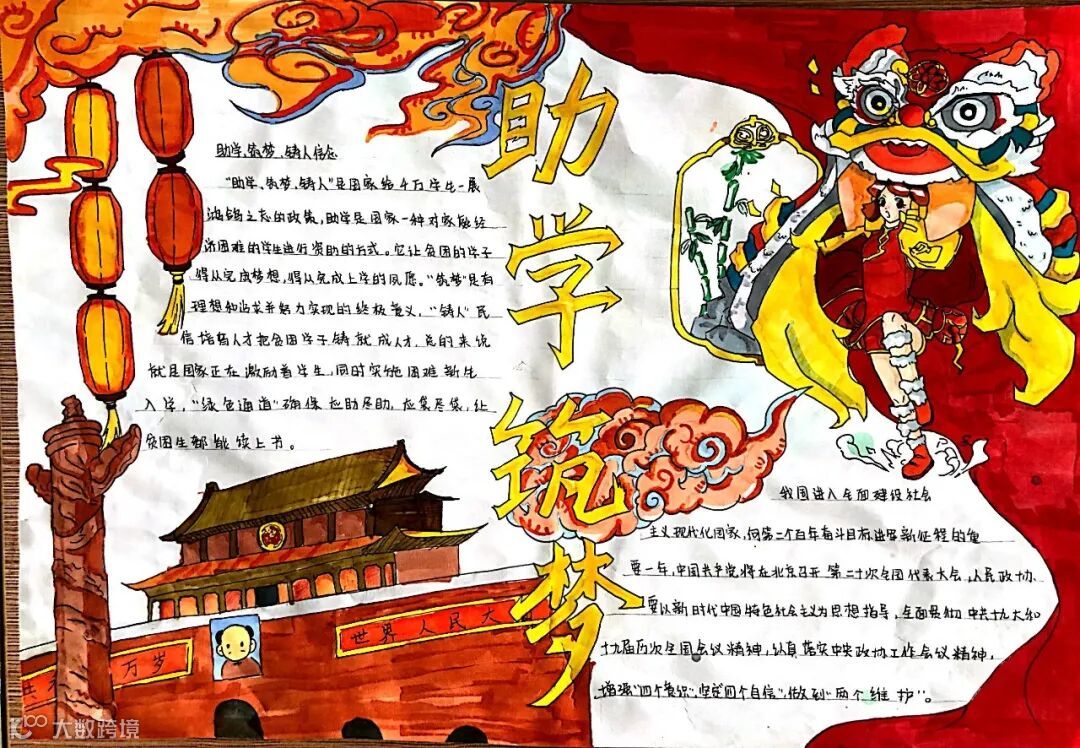 助学筑梦
助学、筑梦、铸人信念
"助学、筑梦、铸人"是国家给千万学生一展
鸿鹄之志的政策,助学是国家一种对家庭经
济困难的学生进行资助的方式。它让贫困的学子
得以完成梦想,得以完成上学的夙愿。"筑梦"是有
理想和追求并努力实现的终极意义,"铸人"民
信培育人才把贫困学子铸就成人才,总的来说
就是国家正在激励着学生,同时实施困难新生
入学,"绿色通道"确保应助尽助,应奖尽奖,让
贫困生都能读上书。
万岁
世界人民大
我国进入全面建设社会
主义现代化国家,向第二个百年奋斗目标进军新征程的重
要一年,中国共产党将在北京召开第二十次全国代表大会,人民政协、
要以新时代中国特色社会主义为思想指导,全面贯彻中共十九大和
十九届历次全国会议精神,认真落实中央政协工作会议精神,
增强"四个意识",坚定"四个自信",做到"两个维护"。
大数跨境